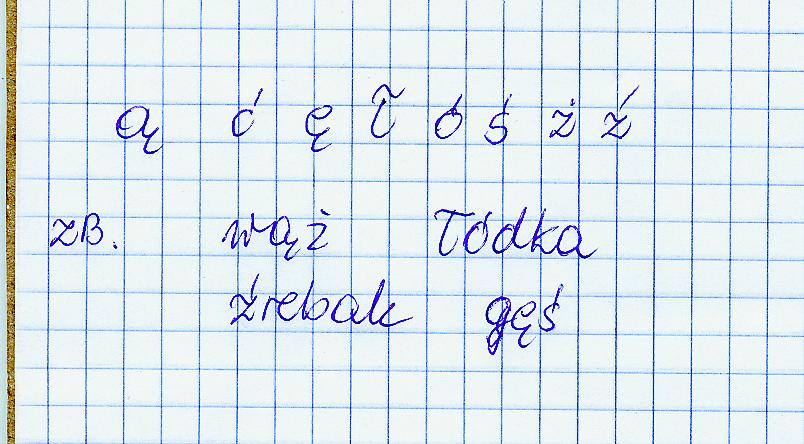 ą ć ę ł ó ś ż ź
zB. wąż łódka
źrebak gęś